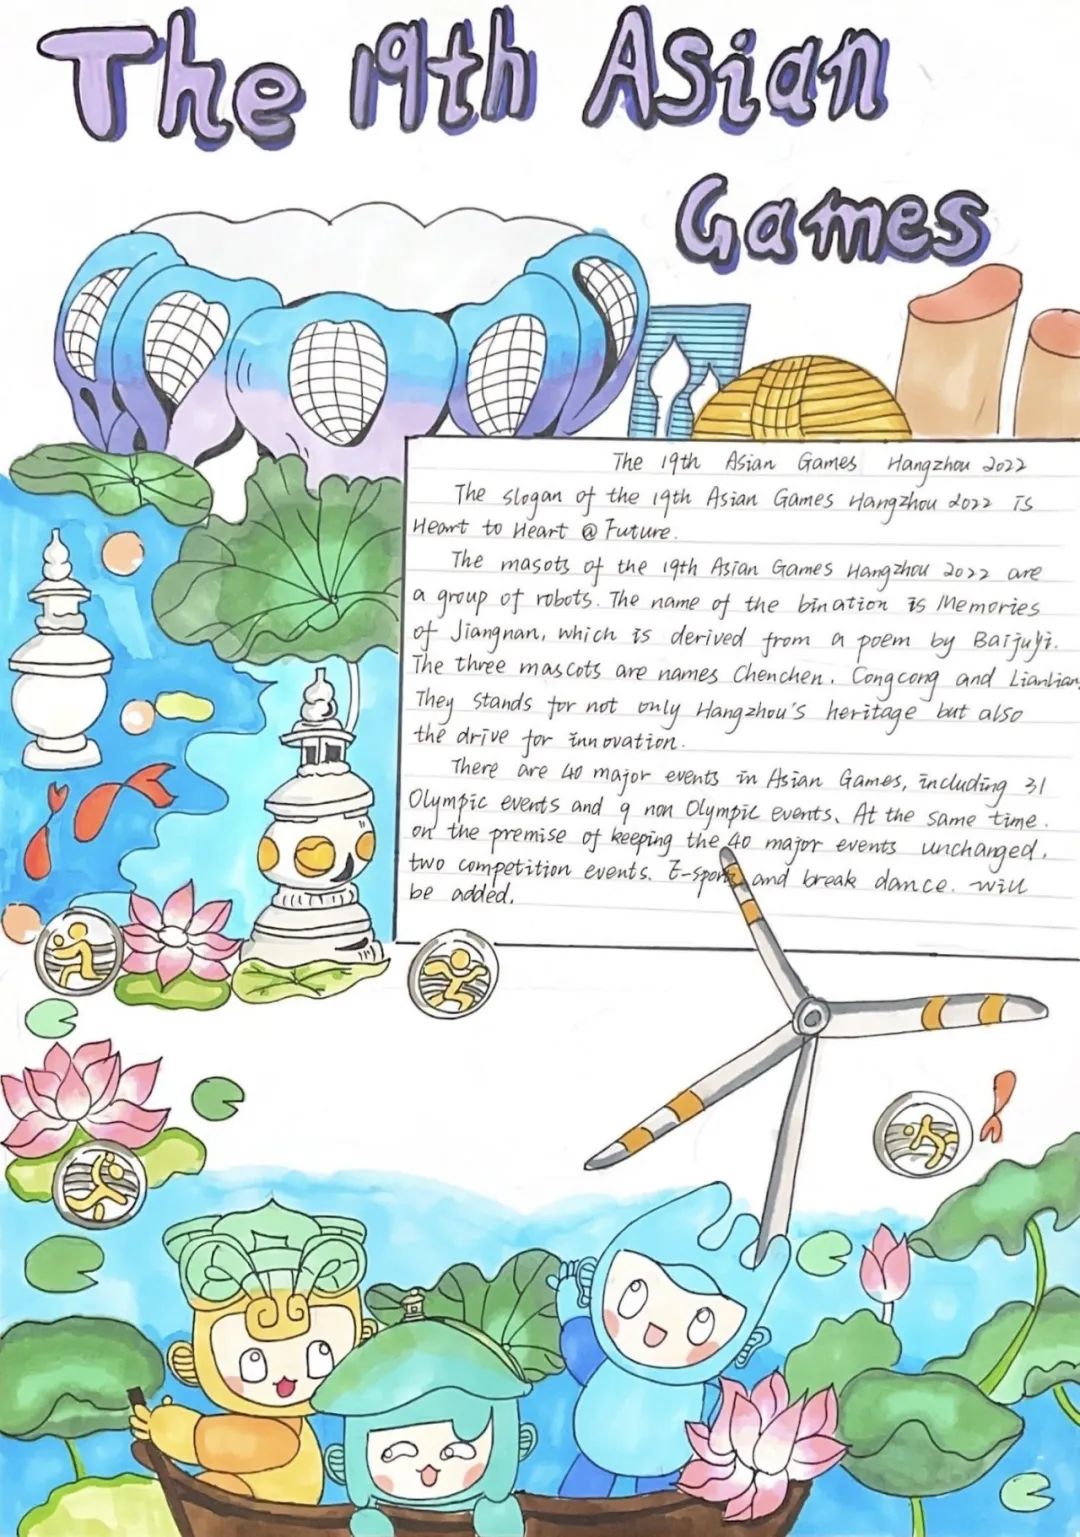 The 19th Asian
Games
The 19th Asian Games Hangzhou 2022
The slogan of the 19th Asian Games Hangzhou 2022 is
Heart to Heart @ Future.
The masots of the 19th Asian Games Hangzhou 2022 are
a group of robots. The name of the bination is Memories
of Jiangnan, which is derived from a poem by BaijuYi.
The three mascots are names Chenchen. Congcong and Lianlian.
They stands for not only Hangzhou's heritage but also
the drive for innovation.
There are 40 major events in Asian Games, including 31
Olympic events and 9 non Olympic events、At the same time.
on the premise of keeping the 40 major events unchanged.
two competition events. E-sports and break dance. will
be added.